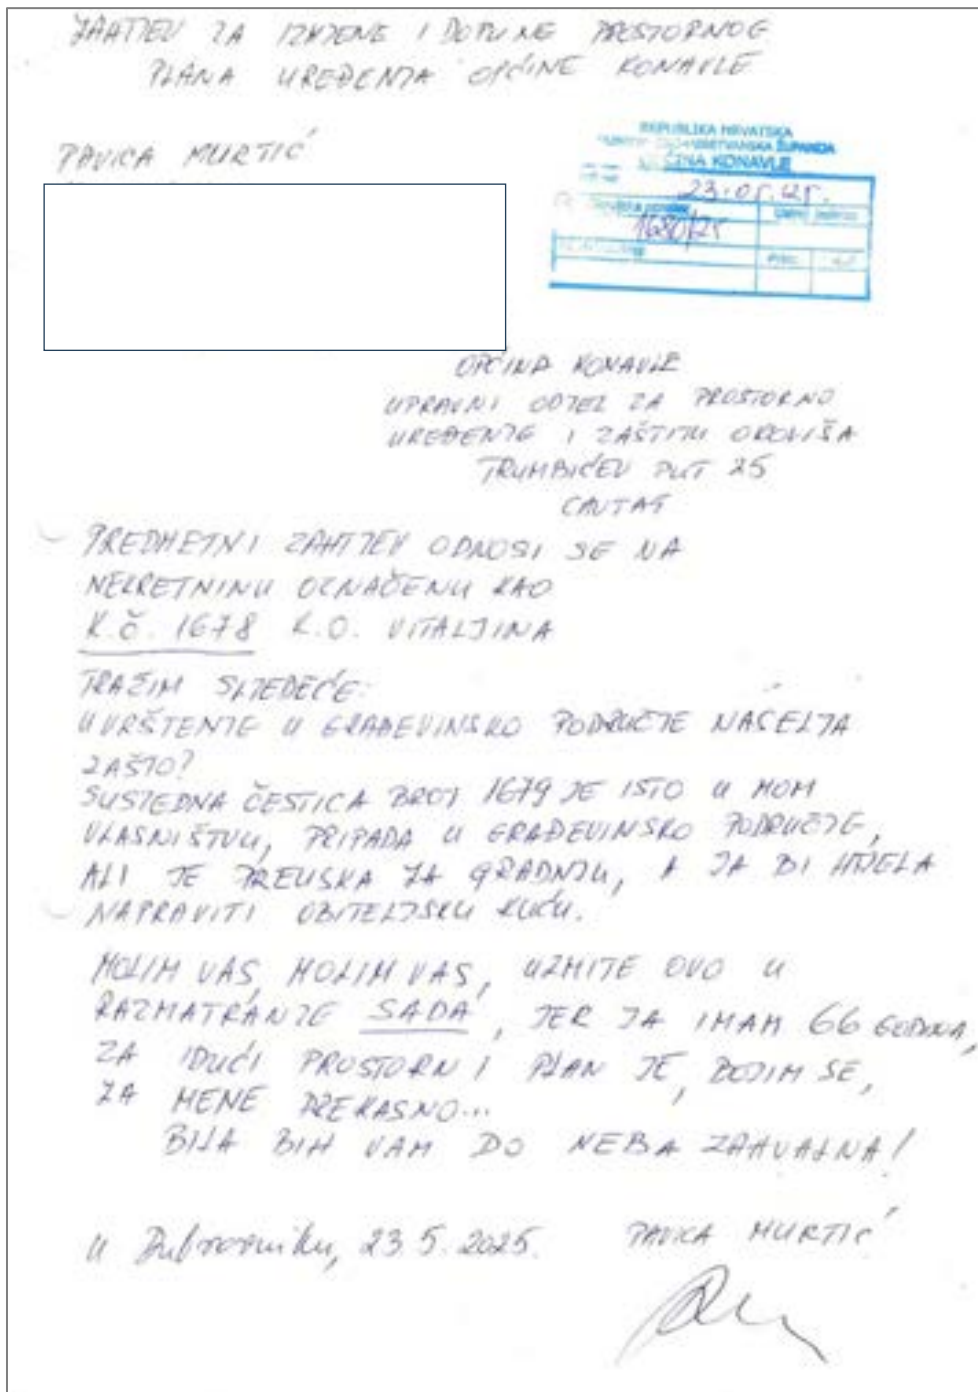 ZAHTJEV ZA IZMJENE I DOPUNE PROSTORNOG
PLANA UREĐENJA OPĆINE KONAVLE
PAVICA MURTIĆ
REPUBLIKA HRVATSKA
ŽUPANIJA
OPĆINA KONAVLE
23.05.25.
1680/25
OPĆINA KONAVLE
UPRAVNI ODJEL ZA PROSTORNO
UREĐENJE I ZAŠTITU OKOLIŠA
TRUMBIĆEV PUT 25
CAVTAT
PREDMETNI ZAHTJEV ODNOSI SE NA
NEKRETNINU OZNAČENU KAO
K.Č. 1678 K.O. VITALJINA
TRAŽIM SLJEDEĆE:
UVRŠTENJE U GRAĐEVINSKO PODRUČJE NASELJA
ZAŠTO?
SUSJEDNA ČESTICA BROJ 1679 JE ISTO U MOM
VLASNIŠTVU, PRIPADA U GRAĐEVINSKO PODRUČJE,
ALI JE PREUSKA ZA GRADNJU, A JA BI HTJELA
NAPRAVITI OBITELJSKU KUĆU.
MOLIM VAS, MOLIM VAS, UZMITE OVO U
RAZMATRANJE SADA, JER JA IMAM 66 GODINA,
ZA IDUĆI PROSTORNI PLAN JE, BOJIM SE,
ZA MENE PREKASNO...
BILA BIH VAM DO NEBA ZAHVALNA!
U Dubrovniku, 23.5.2025. PAVICA MURTIĆ